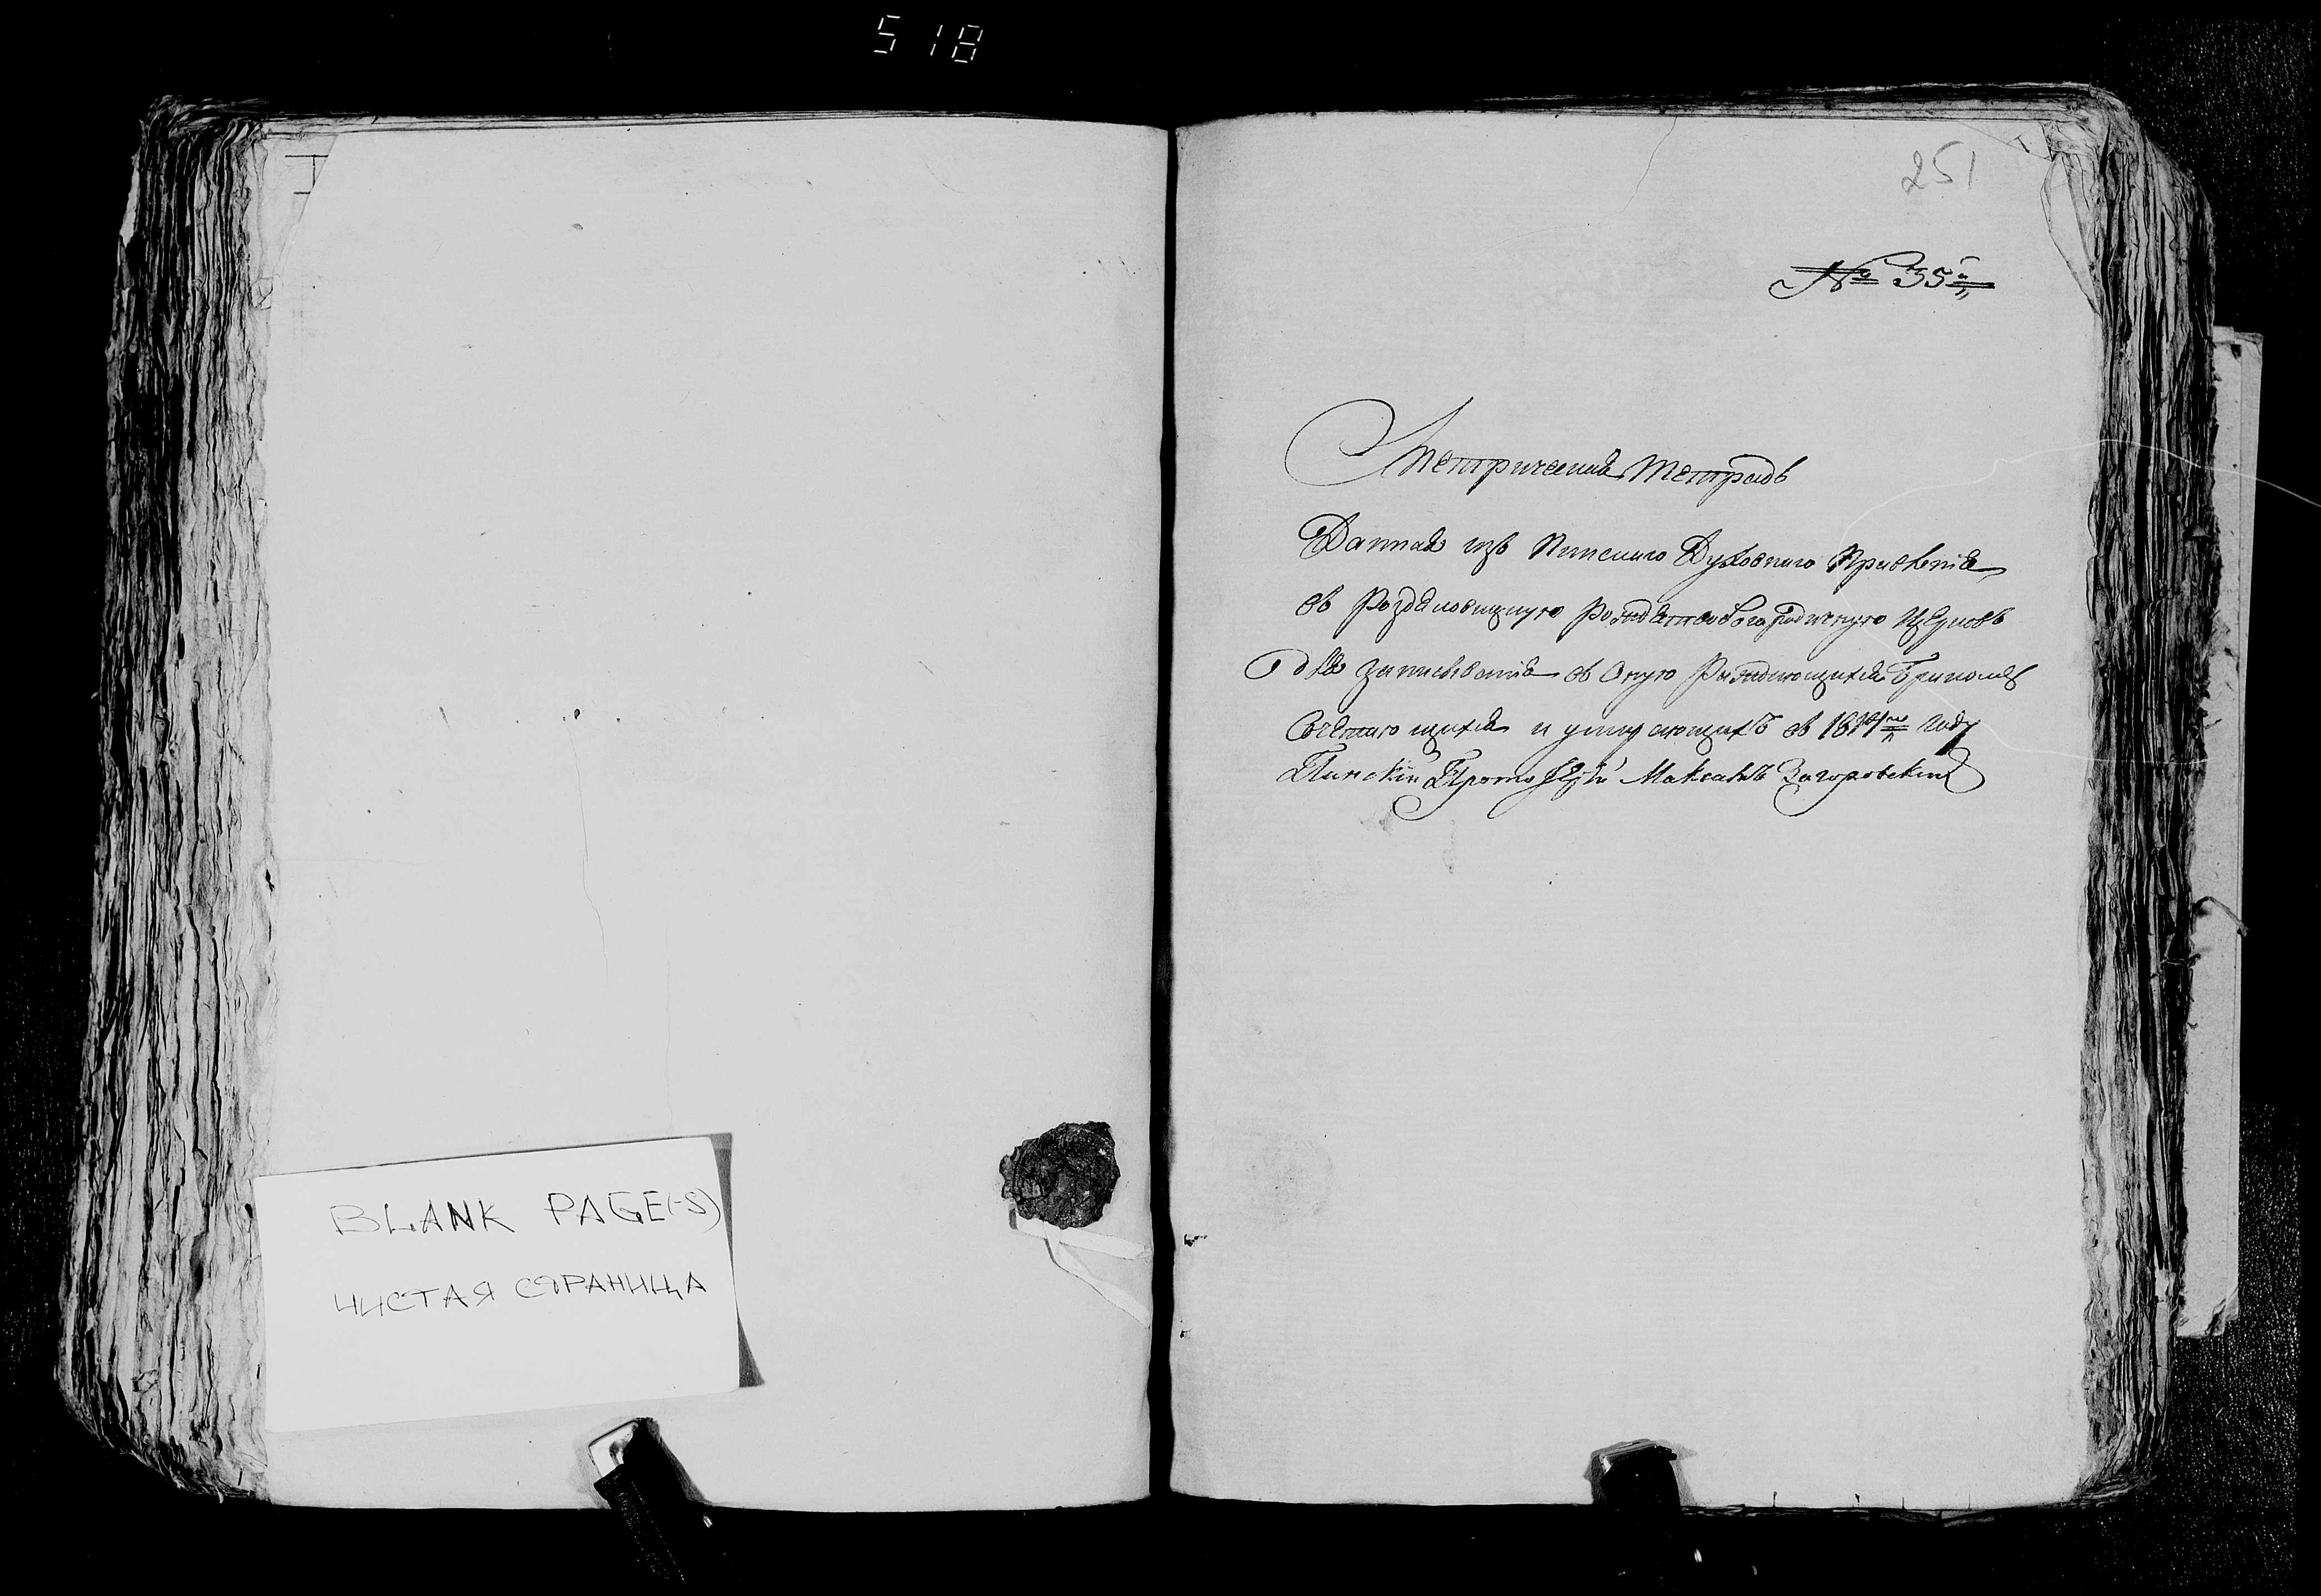 518
BLANK PAGE(-S)
ЧИСТАЯ СТРАНИЦА
251
№ 35й
Метрическая тетрадь
Данная изъ Пинскаго Духовнаго Правленія
въ Роздяловицкую Рождество Богородичную Церковь
для записыванія въ оную Раждающихся Бракомъ
Сочетающихся и умирающихъ въ 1814мъ году
Пинскій Протоіерей Максимъ Загоровскій